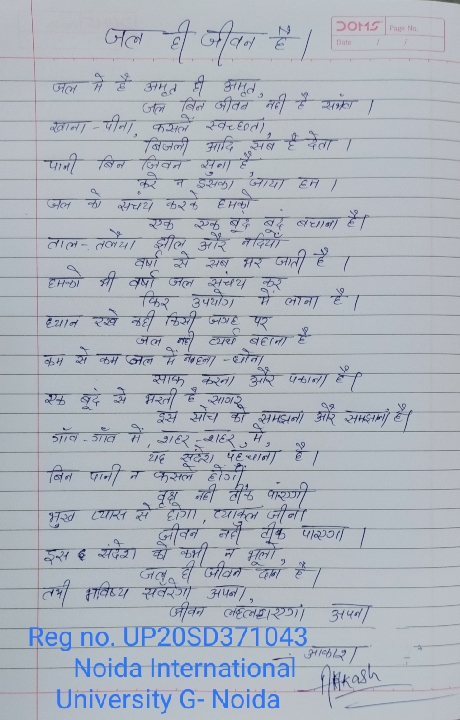 DOMS
Page No.
Date / /
जल ही जीवन है।
जल में है अमृत ही अमृत,
जल बिन जीवन नही है संभव।
खाना-पीना, फसलें स्वच्छता,
बिजली आदि सब है देता।
पानी बिन जिवन सुना है,
करे न इसका जाया हम।
जल को सचंय करके हमको
एक एक बूंद बूंद बचाना है।
ताल-तलैया झील और नदियाँ
वर्षा से सब भर जाती है।
हमको भी वर्षा जल संचय कर
फिर उपयोग में लाना है।
ध्यान रखे कही किसी जगह पर
जल नही व्यर्थ बहाना है
कम से कम जल में नहाना-धोना
साफ करना और पकाना है।
एक बूदं से भरती है सागर
इस सोच को समझना और समझाना है।
गाँव-गाँव में, शहर-शहर में,
यह संदेश पहुचाना है।
बिन पानी न फसलें होंगी
वृक्ष नही टीक पाएगी
भुख प्यास से होगा, व्याकुल जीवन
जीवन नही टीक पाएगा।
इस संदेश को कभी न भूलो,
जल ही जीवन दान है।
तभी भविष्य सवँरेगा अपना,
जीवन लहलहाएगा अपना
आकाश
Akash
Reg no. UP20SD371043
Noida International
University G- Noida